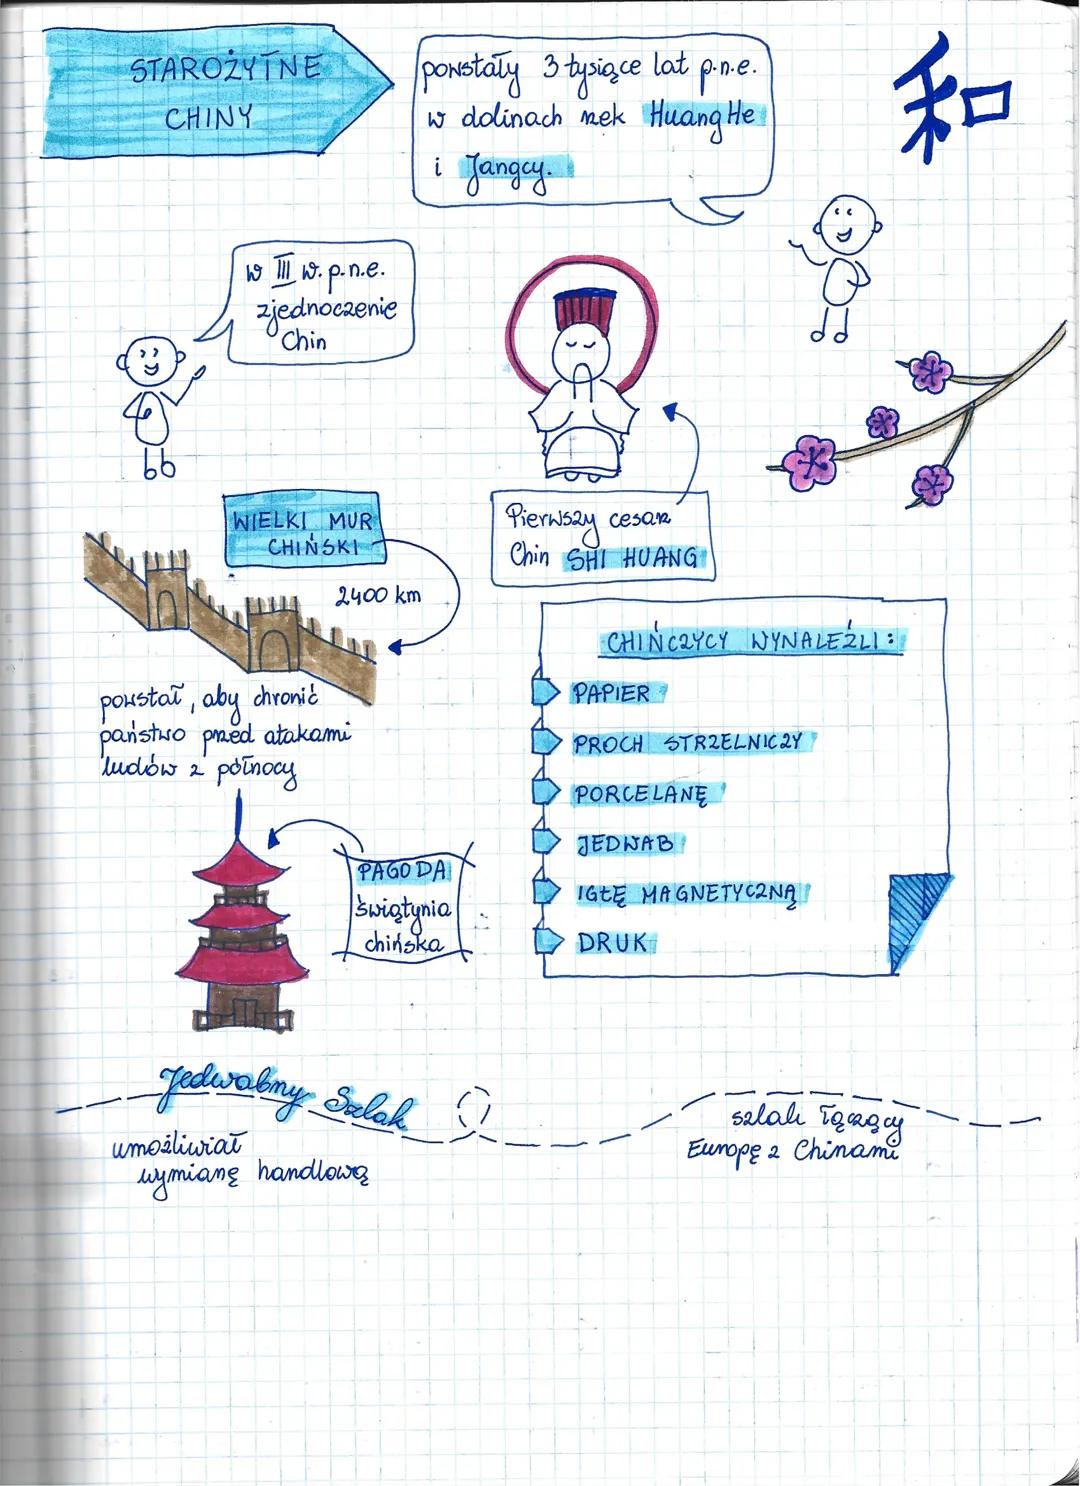 STAROŻYTNE
CHINY
powstały 3 tysiące lat p.n.e.
w dolinach rzek Huang He
i Jangcy.
和
w III w. p.n.e.
zjednoczenie
Chin
WIELKI MUR
CHIŃSKI
2400 km
Pierwszy cesarz
Chin SHI HUANG
powstał, aby chronić
państwo przed atakami
ludów z północy
CHIŃCZYCY WYNALEŹLI:
PAPIER
PROCH STRZELNICZY
PORCELANĘ
JEDWAB
IGŁĘ MAGNETYCZNĄ
DRUK
PAGODA
świątynia
chińska
Jedwabny Szlak
umożliwiał
wymianę handlową
szlak łączący
Europę z Chinami